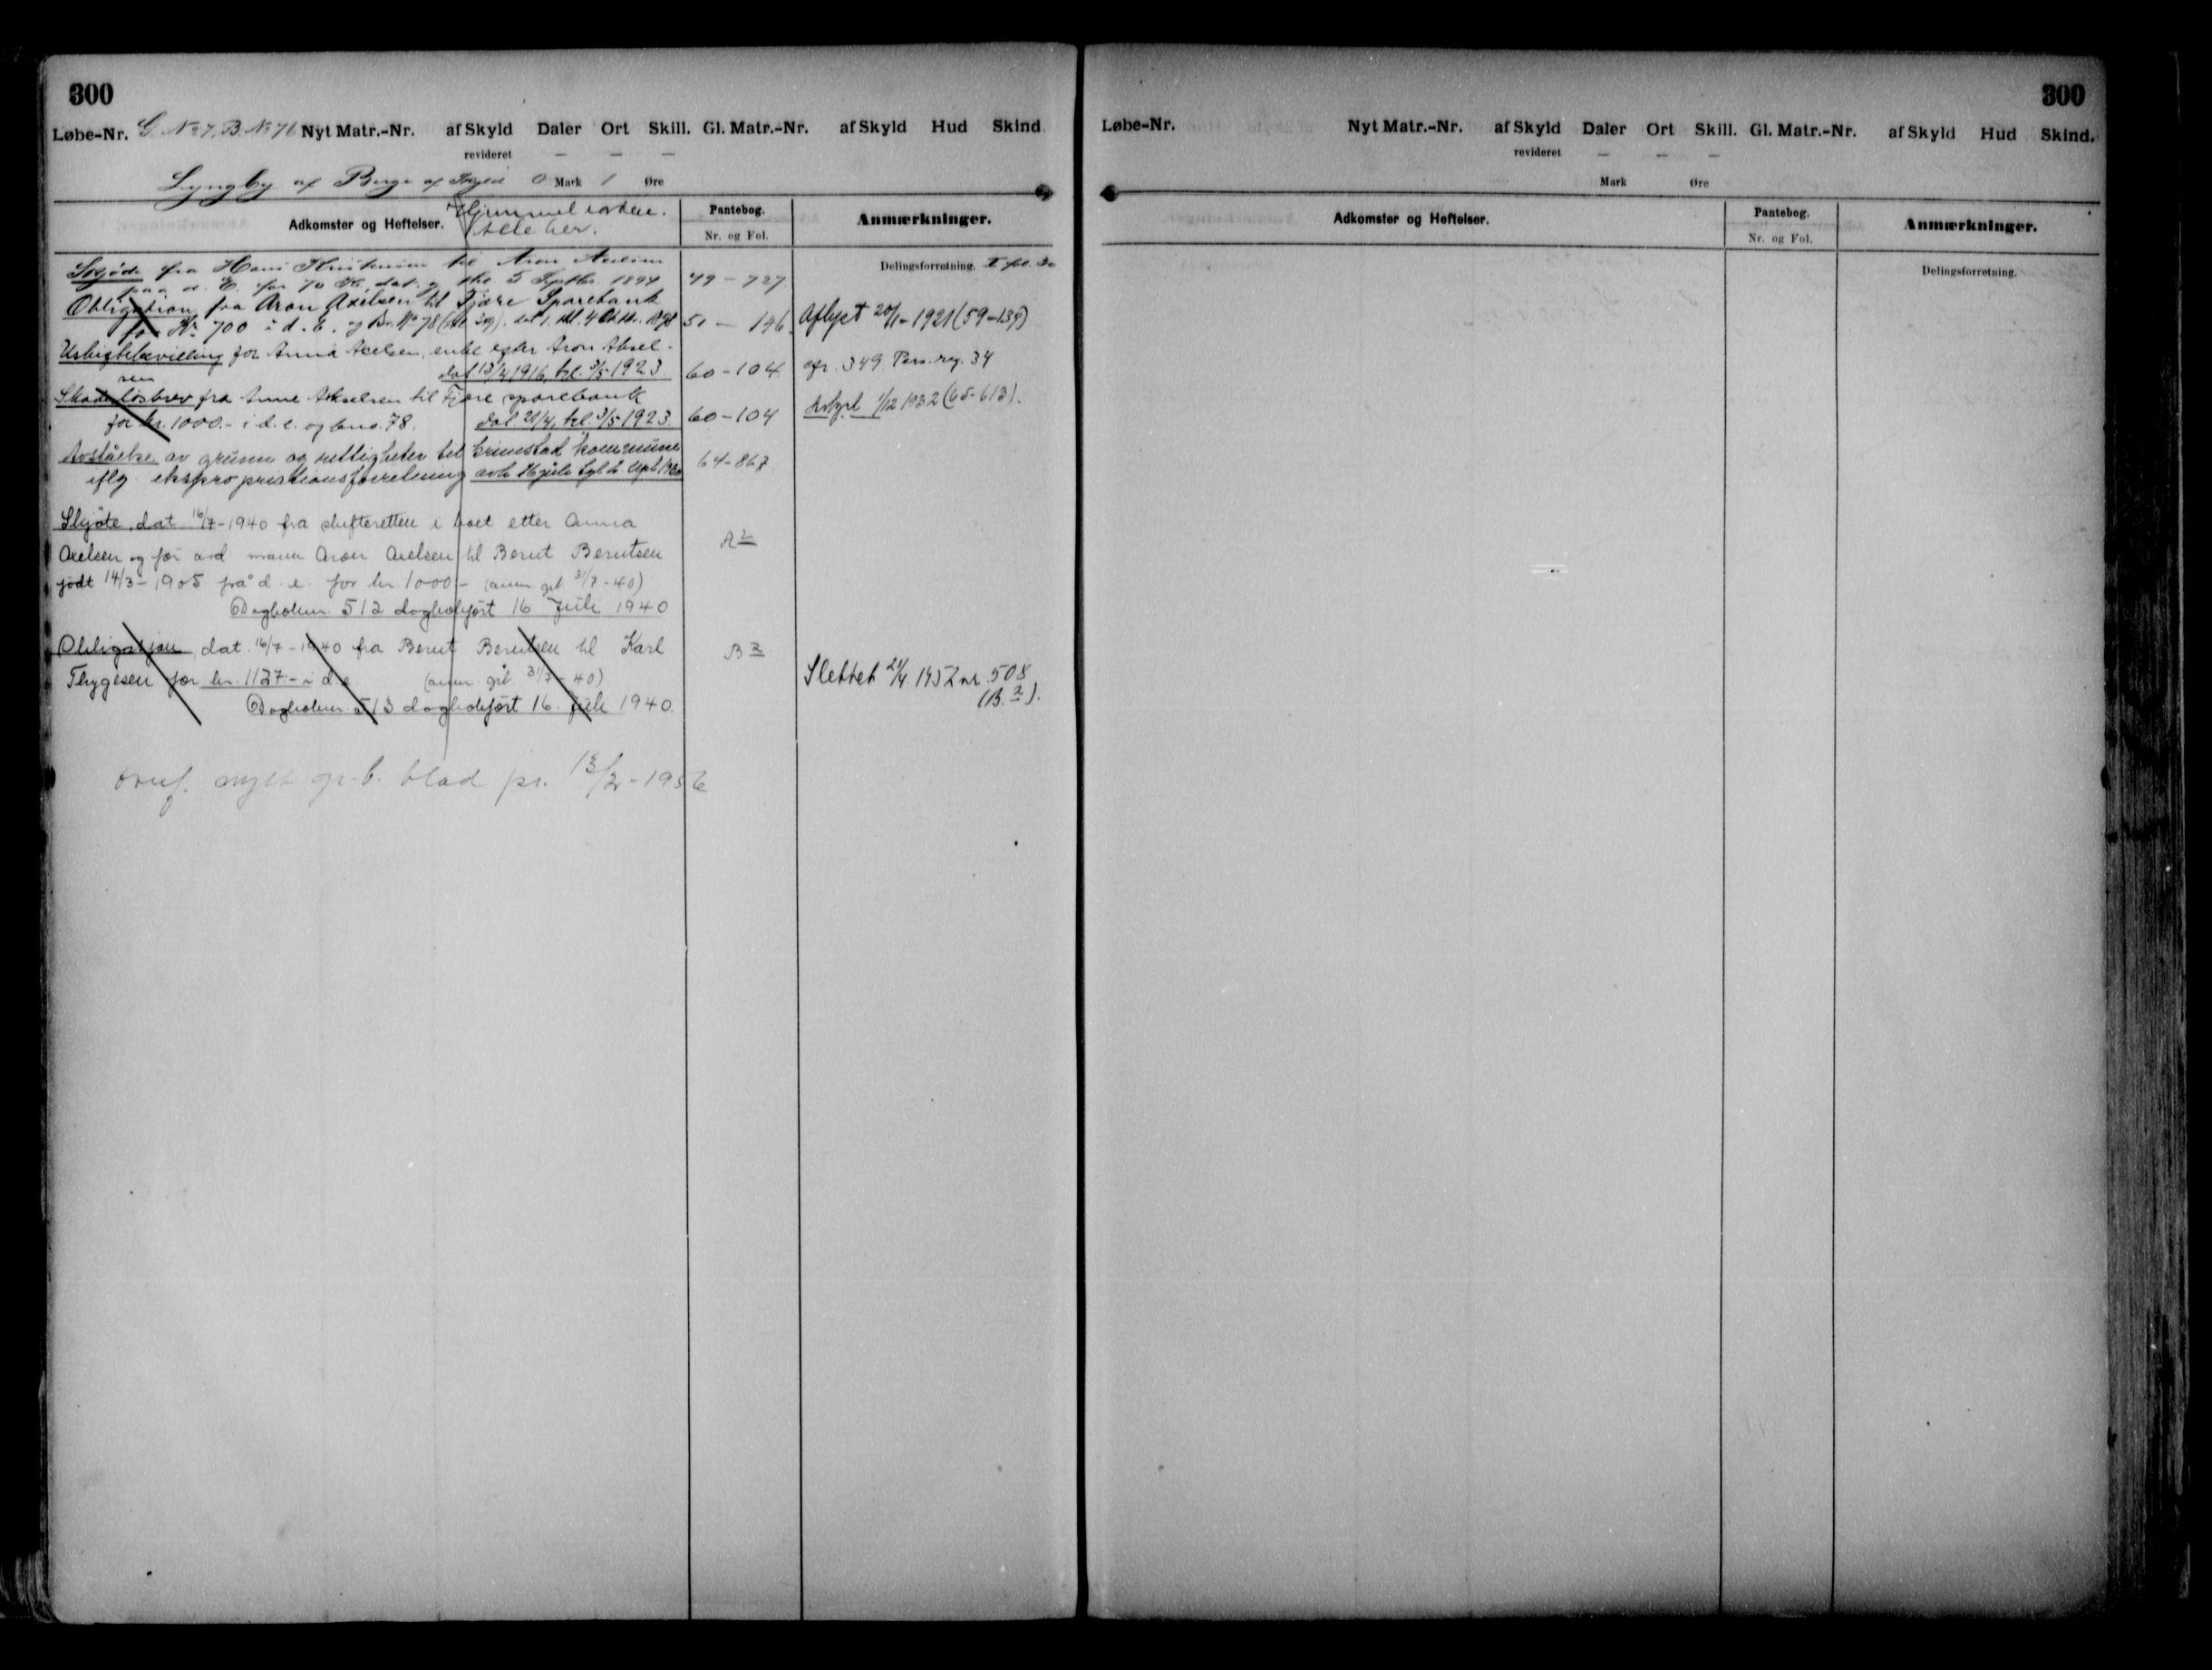 300
Løbe-Nr. G. No 7, B. No 76 Nyt Matr.-Nr. af Skyld Daler Ort Skill. Gl. Matr.-Nr. af Skyld Hud Skind
revideret — — —
Lyngby af Berge af Skyld 0 Mark 1 Øre
Adkomster og Heftelser.
Pantebog.
Nr. og Fol.
Anmærkninger.
Delingsforretning.
Skjøde fra Hans Kristensen til Aron Axelsen
paa d. E. for 70 Kr., dat. og thl. 5 Septbr. 1894 49 – 727
Obligation fra Aron Axelsen til Fjære Sparebank
for Kr. 700 i d. E. og Br. No 78 51 – 146 Aflyst 20/1-1921 (59-139)
Uskiftebevilling for Anna Axelsen, enke efter Aron Aksel-
sen dat 13/4 1916, tl. 3/5 1923. 60-104 cfr. 349 Pers. reg. 34
Skadesløsbrev fra Anne Akselsen til Fjære sparebank
for kr. 1000.- i d. e. og bno. 78. dat 21/4, tl. 3/5 1923. 60-104 Avlyst 1/12 1932 (65-613).
Avståelse av grunn og rettigheter til Grimstad kommune
iflg ekspropriationsforretning 64-867
Skjøte, dat 16/7-1940 fra skifteretten i boet etter Anna
Axelsen og før avd mann Aron Axelsen til Bernt Berntsen
født 14/3-1905 på d. e. for kr. 1000.- (anm. grb. 31/7-40) A 2
Dagboknr. 512 dagbokført 16 Juli 1940
Obligasjon, dat. 16/7-1940 fra Bernt Berntsen til Karl B 2
Thygesen for kr. 1127.- i d e. (anm. grb. 31/7-40) Slettet 21/4 1952 nr. 508
Dagboknr. 513 dagbokført 16. Juli 1940. (B. 2).
overf. nytt gr.b. blad pr. 13/2-1956
300
Løbe-Nr. Nyt Matr.-Nr. af Skyld Daler Ort Skill. Gl. Matr.-Nr. af Skyld Hud Skind.
revideret — — —
Mark Øre
Adkomster og Heftelser.
Pantebog.
Nr. og Fol.
Anmærkninger.
Delingsforretning.